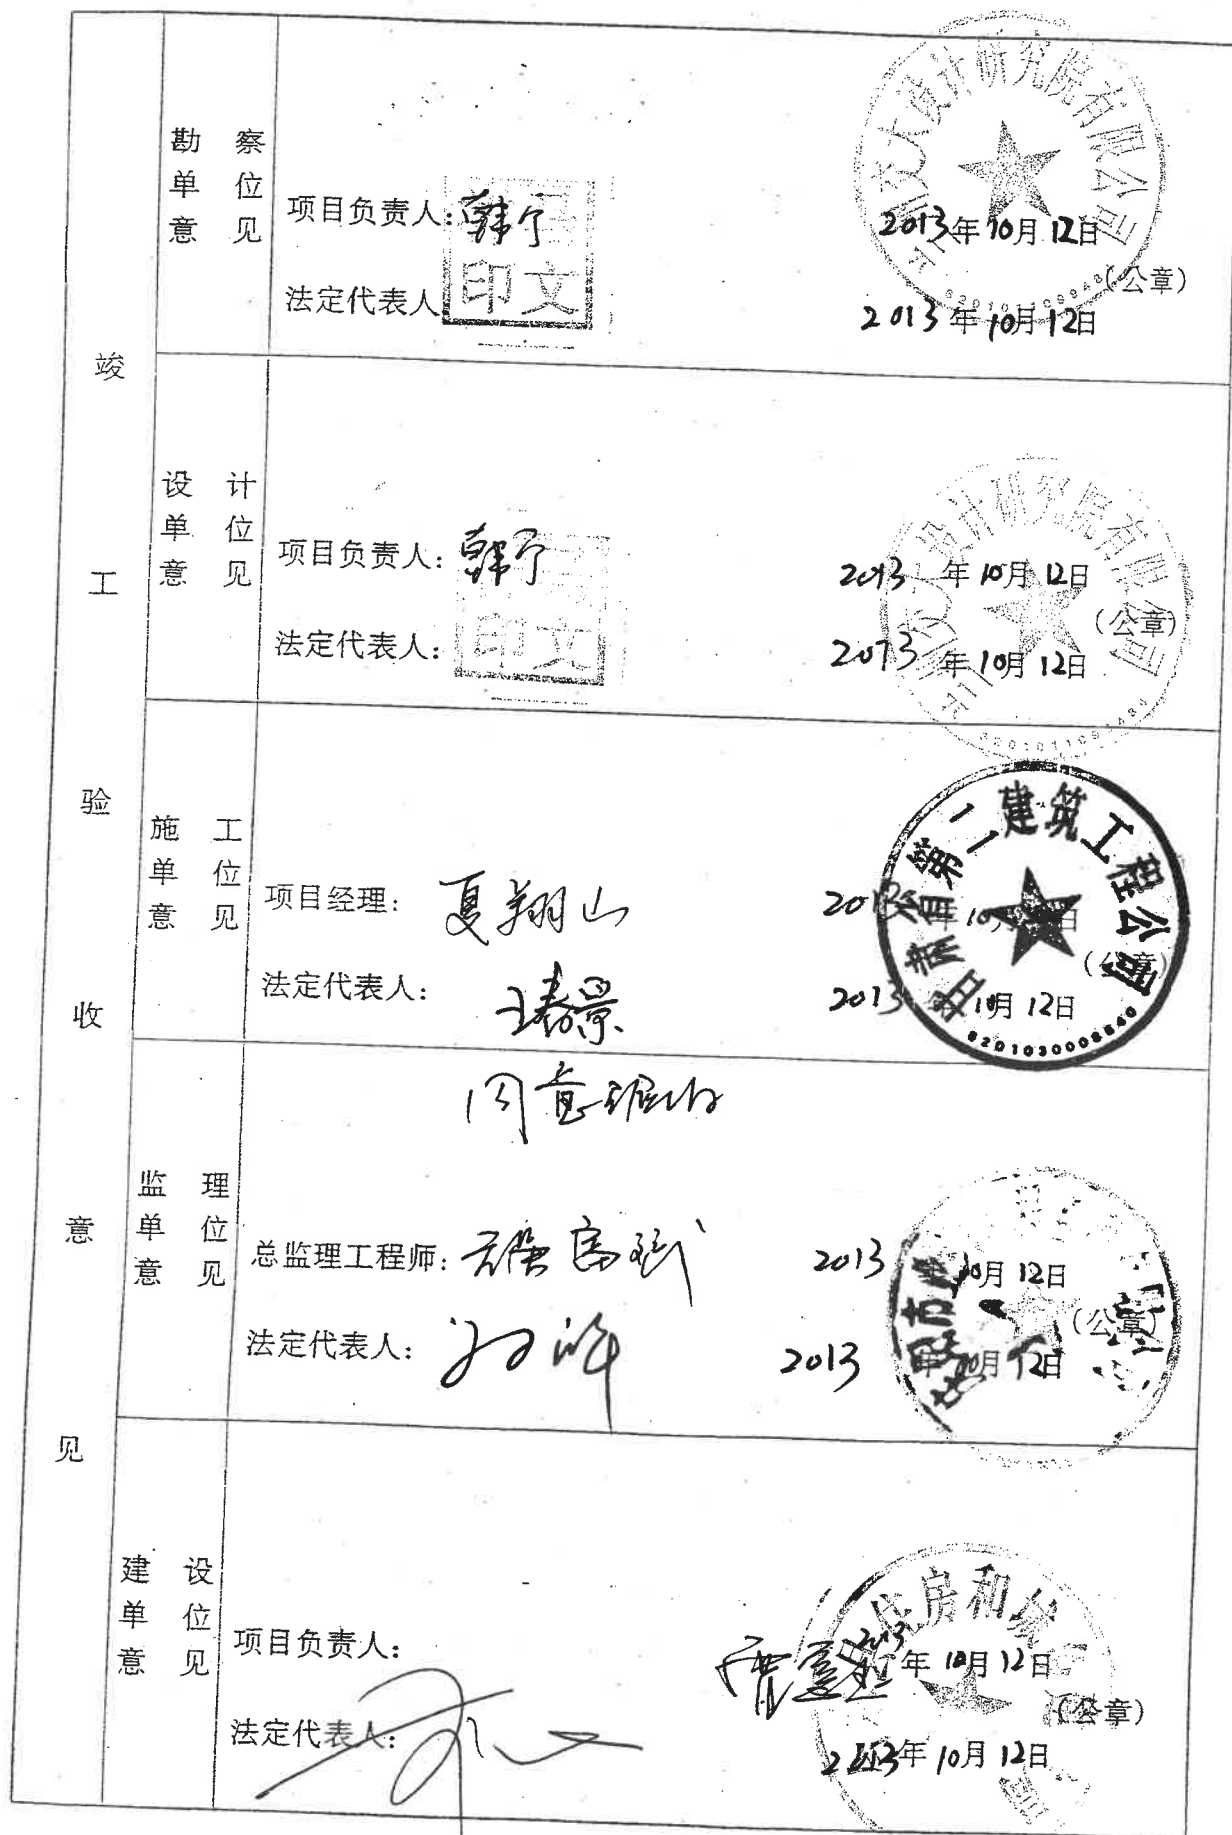 竣工验收意见
勘察单位意见
项目负责人：韩宁
2013年10月12日
（公章）
法定代表人
印文
2013年10月12日
交大设计研究院有限公司
设计单位意见
项目负责人：韩宁
2013年10月12日
（公章）
法定代表人：
印文
2013年10月12日
交大设计研究院有限公司
施工单位意见
项目经理：夏翔山
2013年10月12日
（公章）
法定代表人：王春景
2013年10月12日
甘肃省第二建筑工程公司
监理单位意见
同意验收
总监理工程师：
2013年10月12日
（公章）
法定代表人：
2013年10月12日
建设单位意见
项目负责人：
2013年10月12日
（公章）
法定代表人：
2013年10月12日
住房和城